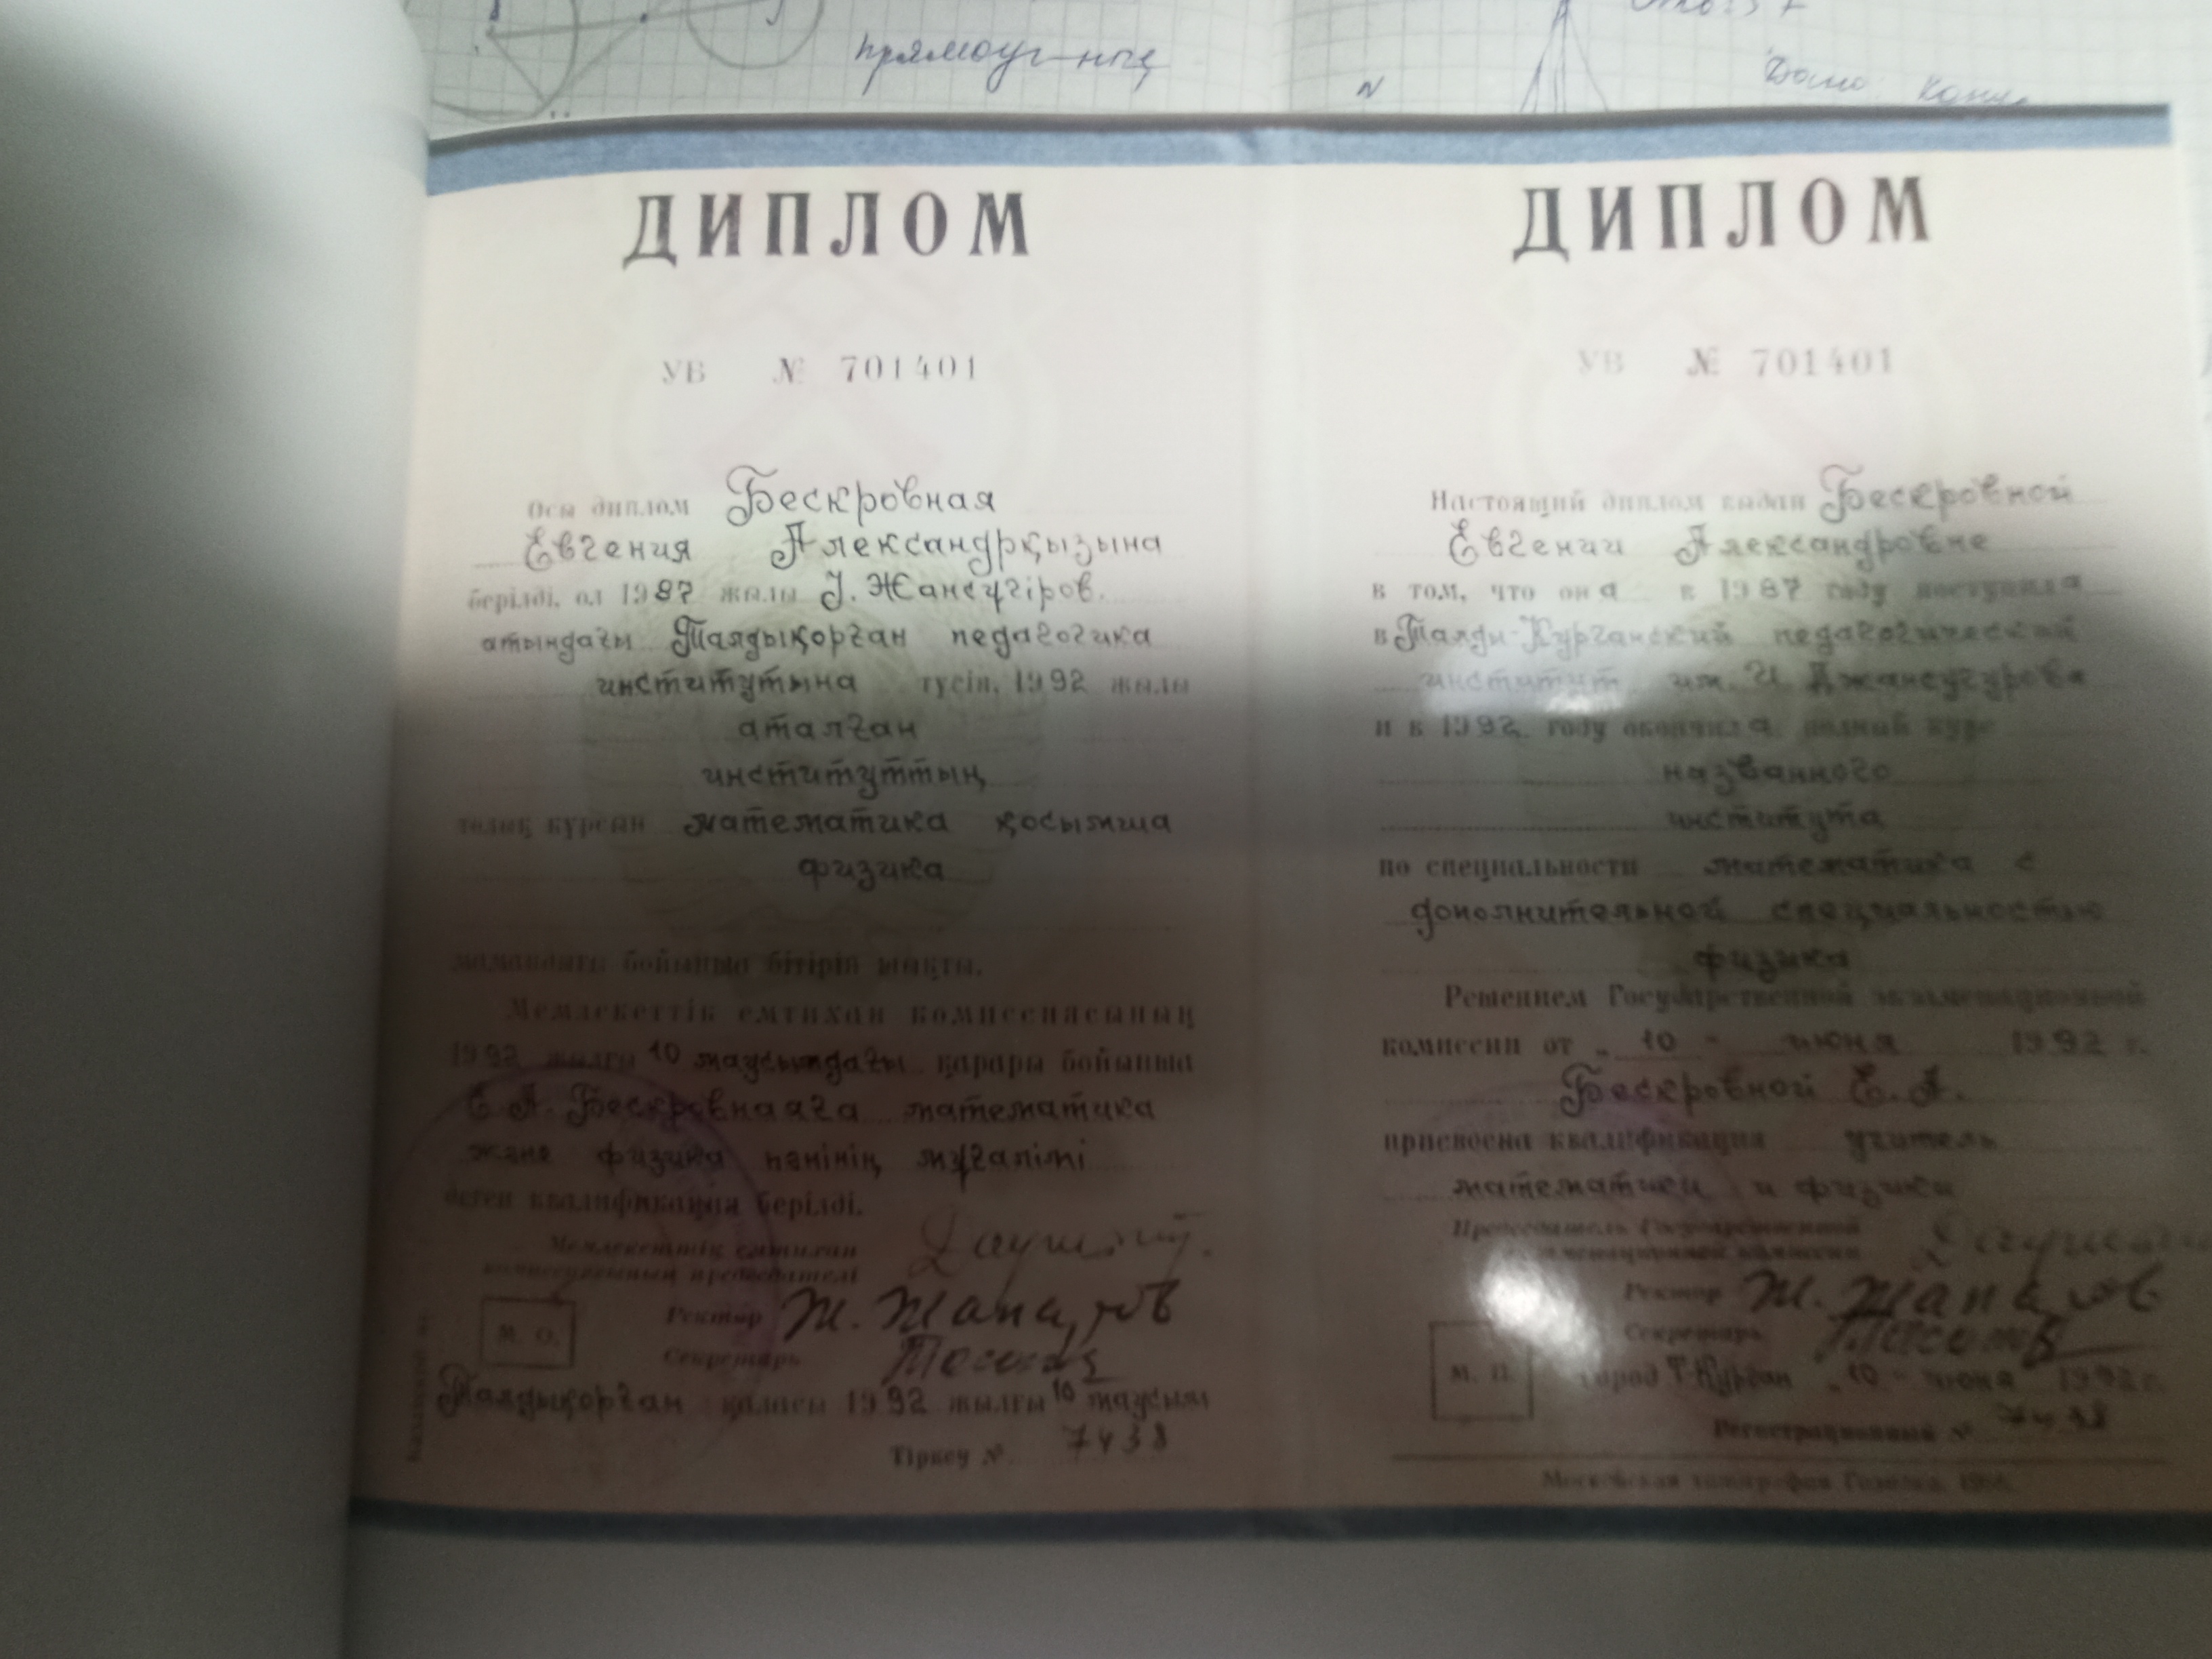 прямоуг-ные
N
Дано
ДИПЛОМ
УВ № 701401
Осы диплом Бескровная
Евгения Александрқызына
берілді, ол 1987 жылы І. Жансүгіров
атындағы Талдықорған педагогика
институтына түсіп, 1992 жылы
аталған
институттың
толық курсын математика қосымша
физика
мамандығы бойынша бітіріп шықты.
Мемлекеттік емтихан комиссиясының
1992 жылғы 10 маусымдағы қарары бойынша
Е. А. Бескровнаяға математика
және физика пәнінің мұғалімі
деген квалификация берілді.
Мемлекеттік емтихан
комиссиясының председателі
Ректор Ж. Жапаров
Секретарь
М. О.
Талдықорған қаласы 1992 жылғы 10 маусым
Тіркеу № 7438
ДИПЛОМ
УВ № 701401
Настоящий диплом выдан Бескровной
Евгении Александровне
в том, что она в 1987 году поступила
в Талды-Курганский педагогический
институт им. И. Джансугурова
и в 1992 году окончила полный курс
названного
института
по специальности математика с
дополнительной специальностью
физика
Решением Государственной экзаменационной
комиссии от „10" июня 1992 г.
Бескровной Е. А.
присвоена квалификация учитель
математики и физики
Председатель Государственной
экзаменационной комиссии
Ректор Ж. Жапаров
Секретарь
М. П.
Город Т-Курган „10" июня 1992 г.
Регистрационный № 7438
Московская типография Гознака.